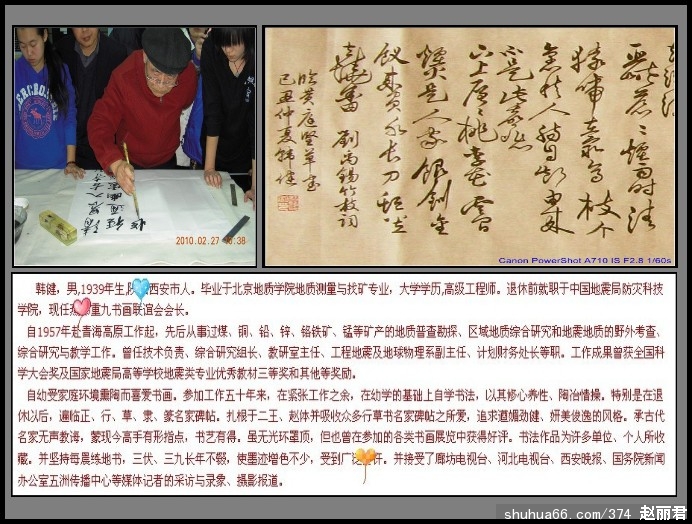 猿啼在最高枝个
不是此聲悲
山上層層桃李花雲
煙火是人家銀釧金
釵來負水長刀短笠
去燒畬 劉禹錫竹枝詞
臨黄庭堅草書
己丑仲夏韩健
2010.02.27 :38
Canon PowerShot A710 IS F2.8 1/60s
韩健，男，1939年生，西安市人。毕业于北京地质学院地质测量与找矿专业，大学学历，高级工程师。退休前就职于中国地震局防灾科技
学院，现任重九书画联谊会会长。
自1957年赴青海高原工作起，先后从事过煤、铜、铅、锌、铬铁矿、锰等矿产的地质普查勘探、区域地质综合研究和震地质的野外考查、
综合研究与教学工作。曾任技术负责、综合研究组长、教研室主任、工程地震及地球物理系副主任、计划财务处长等职。工作成果曾获全国科
学大会奖及国家地震局高等学校地震类专业优秀教材三等奖和其他等奖励。
自幼受家庭环境熏陶而喜爱书画。参加工作五十年来，在紧张工作之余，在幼学的基础上自学书法，以其修心养性、陶冶情操。特别是在退
休以后，遍临正、行、草、隶、篆名家碑帖。扎根于二王、赵体并吸收众多行草书名家碑帖之所爱，追求遒媚劲健、妍美俊逸的风格。承古代
名家无声教诲，蒙现今高手有形指点，书艺有得。虽无光环罩顶，但也曾在参加的各类书画展览中获得好评。书法作品为许多单位、个人所收
藏。并坚持每晨练地书，三伏、三九长年不辍，使墨迹增色不少，受到广泛许。并接受了廊坊电视台、河北电视台、西安晚报、国务院新闻
办公室五洲传播中心等媒体记者的采访与录象、摄影报道。
shuhua66.com/374 赵丽君